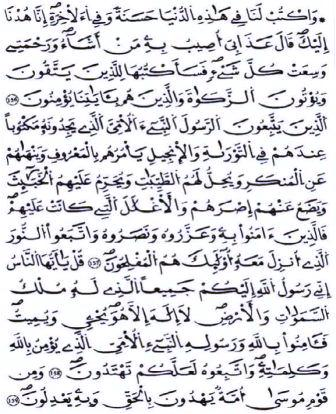 ۞ وَاكْتُبْ لَنَا فِي هَٰذِهِ الدُّنْيَا حَسَنَةً وَفِي اِ۬لَاخِرَةِ إِنَّا هُدْنَا
إِلَيْكَ قَالَ عَذَابِيَ أُصِيبُ بِهِ مَنَ اَشَاءُ وَرَحْمَتِي
وَسِعَتْ كُلَّ شَيْءٍ فَسَأَكْتُبُهَا لِلَّذِينَ يَتَّقُونَ
وَيُوتُونَ الزَّكَوٰةَ وَالَّذِينَ هُم بِـَٔايَٰتِنَا يُومِنُونَ ١٥٦
الَّذِينَ يَتَّبِعُونَ الرَّسُولَ النَّبِيءَ الْأُمِّيَّ الَّذِي يَجِدُونَهُ مَكْتُوبًا
عِندَهُمْ فِي التَّوْرَىٰةِ وَالْإِنجِيلِ يَأْمُرُهُم بِالْمَعْرُوفِ وَيَنْهَىٰهُمْ
عَنِ الْمُنكَرِ وَيُحِلُّ لَهُمُ الطَّيِّبَٰتِ وَيُحَرِّمُ عَلَيْهِمُ الْخَبَٰٓئِثَ
وَيَضَعُ عَنْهُمْ إِصْرَهُمْ وَالْأَغْلَٰلَ الَّتِي كَانَتْ عَلَيْهِمْ
فَالَّذِينَ ءَامَنُوا بِهِ وَعَزَّرُوهُ وَنَصَرُوهُ وَاتَّبَعُوا النُّورَ
الَّذِي أُنزِلَ مَعَهُ أُوْلَٰٓئِكَ هُمُ الْمُفْلِحُونَ ١٥٧ قُلْ يَٰأَيُّهَا النَّاسُ
إِنِّي رَسُولُ اللَّهِ إِلَيْكُمْ جَمِيعًا الَّذِي لَهُ مُلْكُ
السَّمَٰوَٰتِ وَالْأَرْضِ لَا إِلَٰهَ إِلَّا هُوَ يُحْيِي وَيُمِيتُ
فَـَٔامِنُوا بِاللَّهِ وَرَسُولِهِ النَّبِيءِ الْأُمِّيِّ الَّذِي يُومِنُ بِاللَّهِ
وَكَلِمَٰتِهِ وَاتَّبِعُوهُ لَعَلَّكُمْ تَهْتَدُونَ ١٥٨ وَمِن
قَوْمِ مُوسَىٰ أُمَّةٌ يَهْدُونَ بِالْحَقِّ وَبِهِ يَعْدِلُونَ ١٥٩